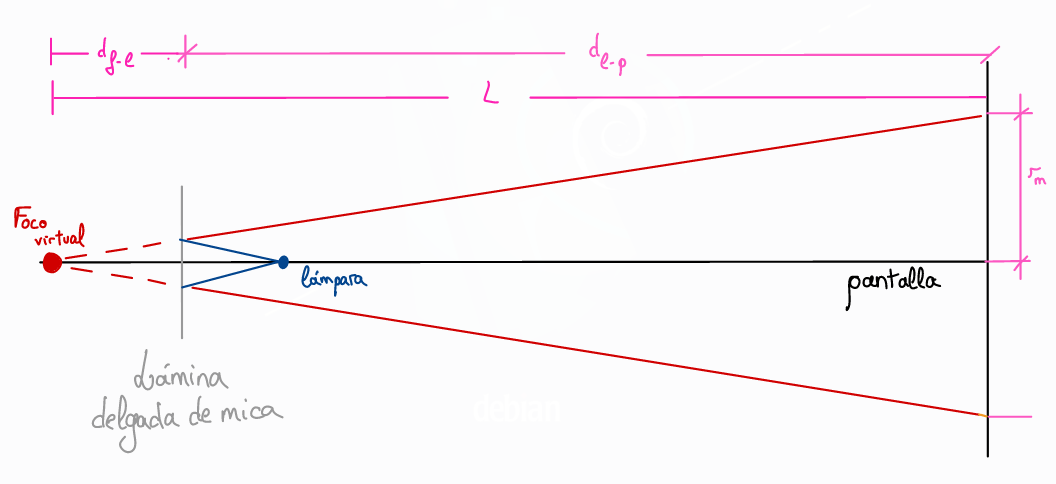 d f-l
d l-p
L
r m
Foco
virtual
lámpara
pantalla
Lámina
delgada de mica
debian